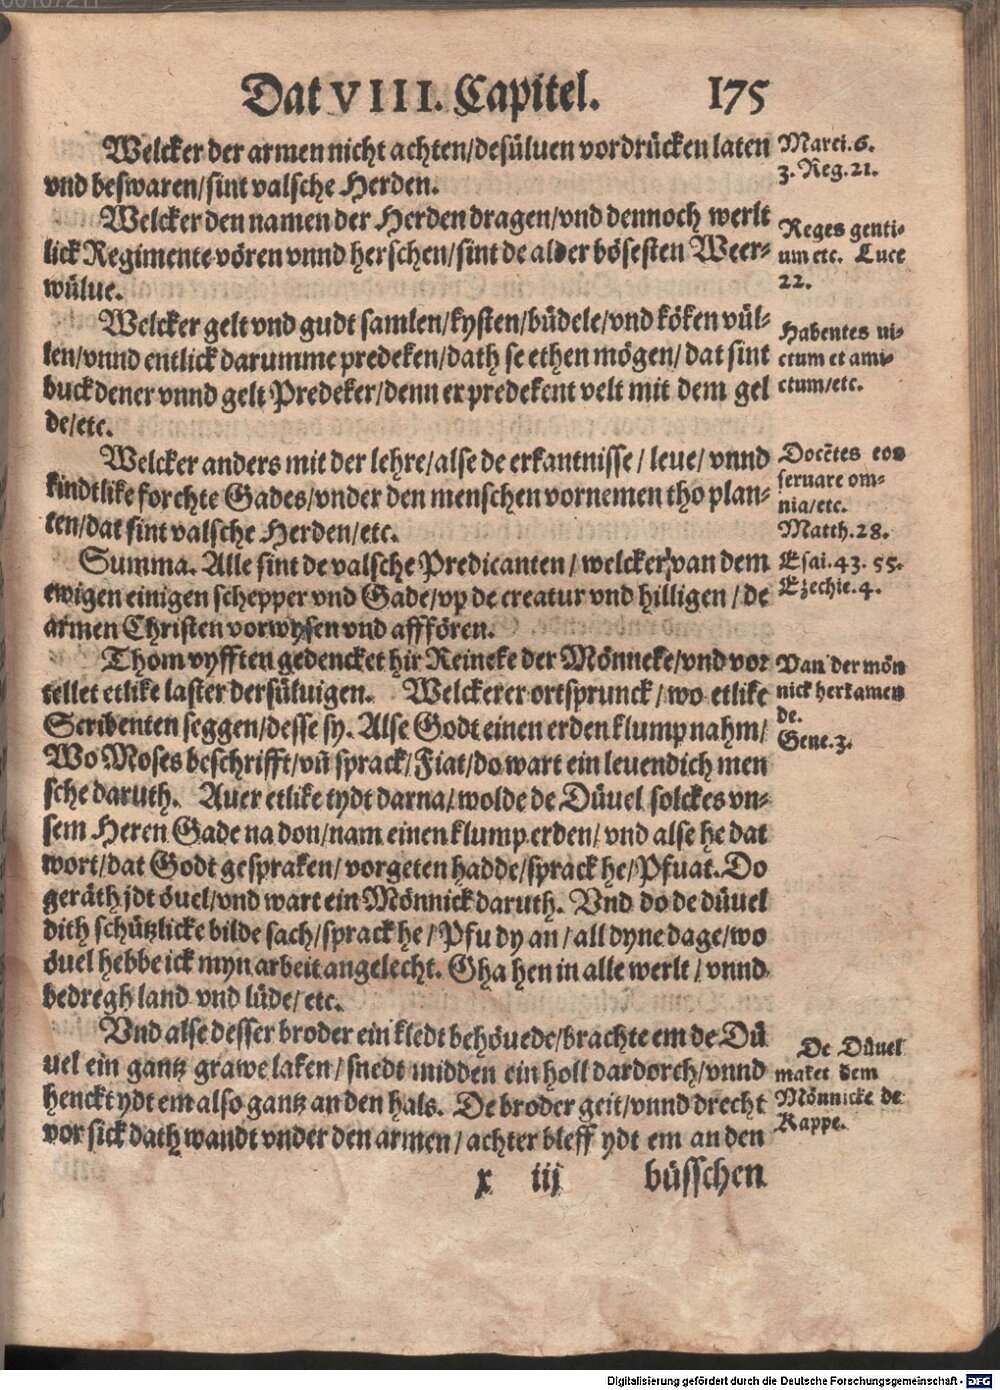 Dat VIII. Capitel. 175
Welcker der armen nicht achten/desüluen vordrücken laten
vnd beswaren/sint valsche Herden.
Marci. 6.
3. Reg. 21.
Welcker den namen der Herden dragen/vnd dennoch werlt
lick Regimente vören vnnd herschen/sint de alder bösesten Weer-
wülue.
Reges genti-
um etc. Luce
22.
Welcker gelt vnd gudt samlen/kysten/büdele/vnd köken vül-
len/vnnd entlick darumme predeken/dath se ethen mögen/dat sint
buckdener vnnd gelt Predeker/denn er predekent velt mit dem gel
de/etc.
Habentes vi-
ctum et ami-
ctum/etc.
Welcker anders mit der lehre/alse de erkantnisse/leue/vnnd
kindtlike forchte Gades/vnder den menschen vornemen tho plan-
ten/dat sint valsche Herden/etc.
Docētes eos
seruare om-
nia/etc.
Matth. 28.
Summa. Alle sint de valsche Predicanten/welcker van dem
ewigen einigen schepper vnd Gade/vp de creatur vnd hilligen/de
armen Christen vorwysen vnd affören.
Esai. 43. 55.
Ezechie. 4.
Thom vyfften gedencket hir Reineke der Mönneke/vnd vor
tellet etlike laster dersüluigen. Welckerer ortsprunck/wo etlike
Scribenten seggen/desse sy. Alse Godt einen erdenklump nahm/
Wo Moses beschrifft/vñ sprack/Fiat/do wart ein leuendich men
sche daruth. Auer etlike tydt darna/wolde de Düuel solckes vn-
sem Heren Gade na don/nam einen klump erden/vnd alse he dat
wort/dat Godt gespraken/vorgeten hadde/sprack he/Pfuat. Do
geräth jdt öuel/vnd wart ein Mönnick daruth. Vnd do de düuel
dith schützlicke bilde sach/sprack he/Pfu dy an/all dyne dage/wo
öuel hebbe ick myn arbeit angelecht. Gha hen in alle werlt/vnnd
bedregh land vnd lüde/etc.
Van der mön
nick herkamen
de.
Gene. 3.
Vnd alse desser broder ein kledt behöuede/brachte em de Dü
uel ein gantz grawe laken/snedt midden ein holl dardorch/vnnd
henckt ydt em also gantz an den hals. De broder geit/vnnd drecht
vor sick dath wandt vnder den armen/achter bleff ydt em an den
De Düuel
maket dem
Mönnicke de
Kappe.
x iij büsschen
Digitalisierung gefördert durch die Deutsche Forschungsgemeinschaft - DFG